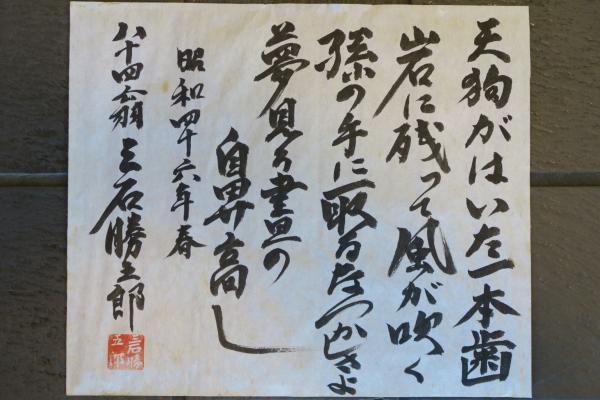 天狗がはいた一本歯
岩に残って風が吹く
孫の手に取るなつかしさよ
夢見るの
鼻高し
昭和四十六年春
八十四翁 三石勝五郎
三石勝
五郎